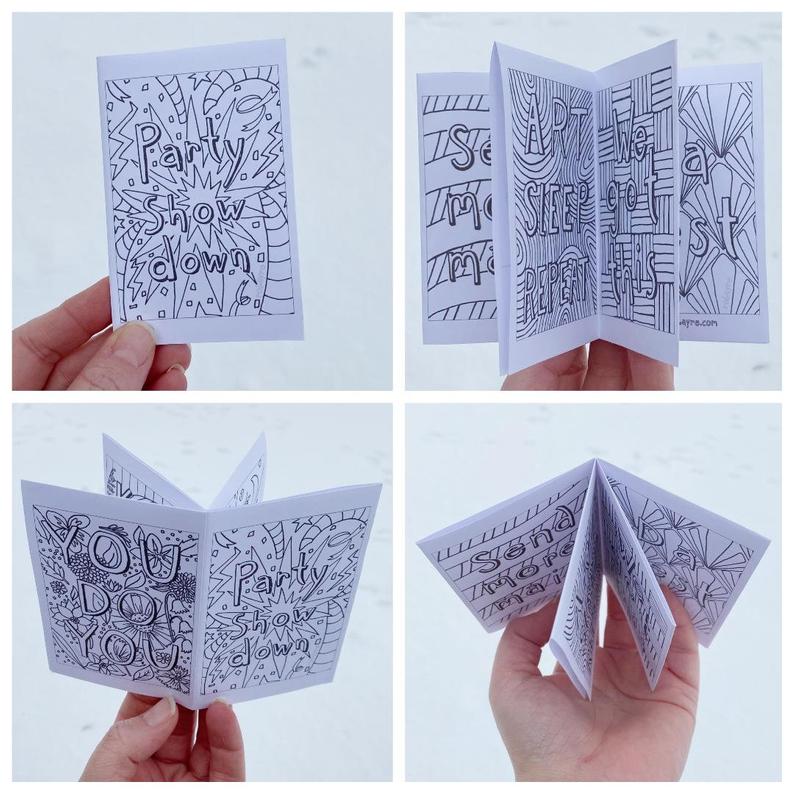 Party
Show
down
Se
mo
ma
ART
SLEEP
REPEAT
We
got
this
a
st
ayre.com
YOU
DO
YOU
Party
Show
down
Send
more